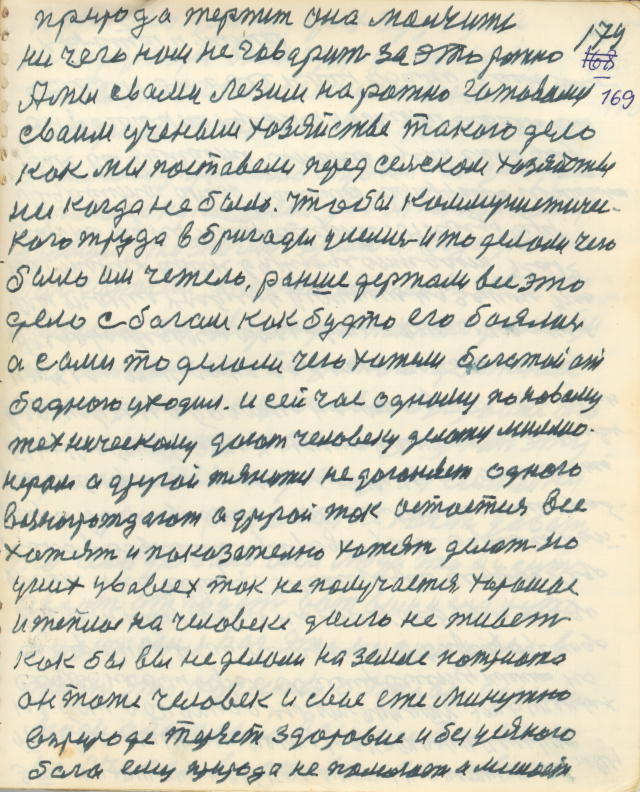 природа терпит она молчить
ни чего нам не говарит за это можно
179
168
А мы свами лезим на рожно готовами
169
своим ученым хозяйстве такого дело
как мы поставели перед сельском хозяйстве
ни когда не было. чтобы коммунистичес-
кого труда в бригады умели и то делали чего
было им четель, раньше держали все это
дело с богом как будто его боялись
а сами то делали чего хотели богатой от
бедного уходил. и сейчас одному по новому
техническому дают человеку делать милио-
нером а другой тянится не догоняет одного
вознограждают а другой так остается все
хотят и показателно хотят делат но
у них у вовсех так не получается хорошое
и теплое на человеке долго не живет
как бы вы не делали на земле
он тоже человек и свое еже минутно
в природе теряет здоровие и без всякого
бога ему природа не помогает а мешает